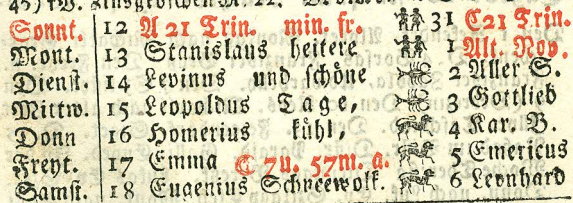 45) rW. Zinsgroschen M. 22.
Sonnt. 12 A 21 Trin. min. fr. 31 C21 Trin.
Mont. 13 Stanislaus heitere 1 Alt. Nov.
Dienst. 14 Levinus und schöne 2 Aller S.
Mittw. 15 Leopoldus Tage, 3 Gottlieb
Donn 16 Homerius kühl, 4 Kar. B.
Freyt. 17 Emma ☾ 7u. 57m. a. 5 Emericus
Samst. 18 Eugenius Schneewolk. 6 Leonhard